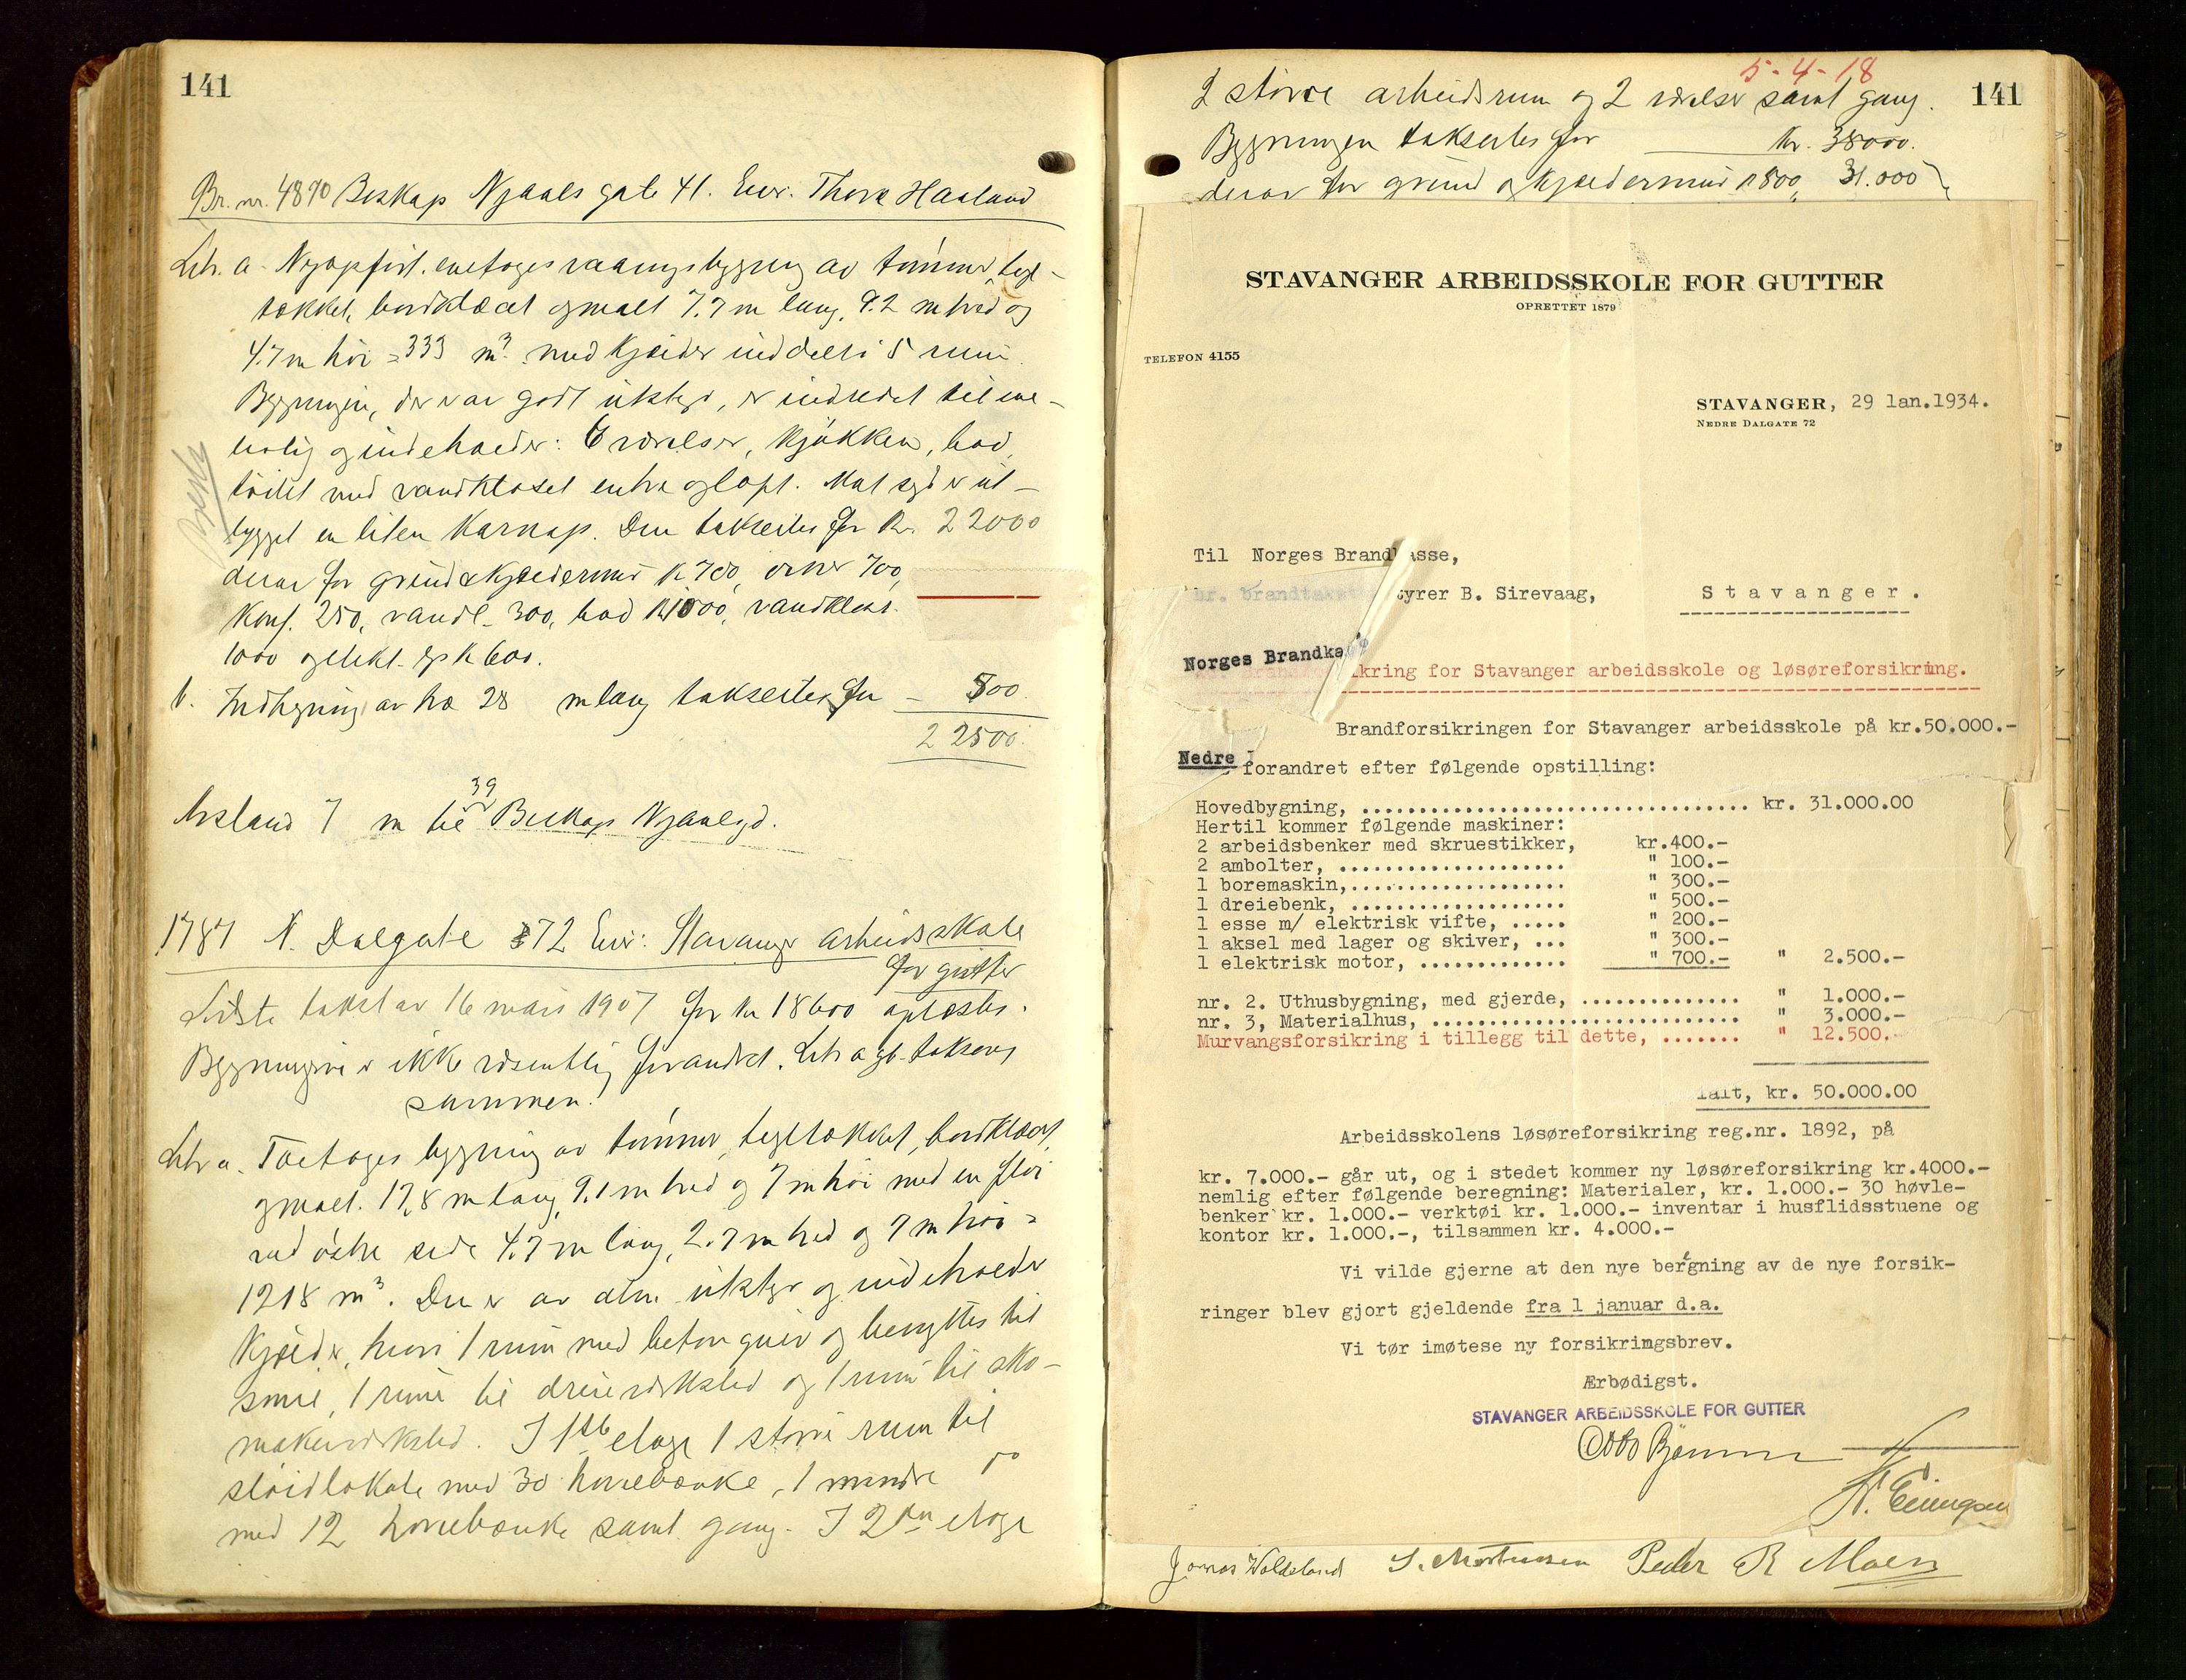 141
Br. nr. 4870 Biskop Njaals gate 41. Eier: Thora Haaland
Litr. a. Nyopført enetages vaaningsbygning av tømmer, tegl-
tækket, bordklædt og malt 7.7 m lang, 9.2 m bred og
4.7 m høi = 333 m³ med kjælder inddelt i 5 rum.
Bygningen, der var godt utstyr, er indredet til ene-
bolig og indeholder: 6 værelser, kjøkken, bad,
toilet med vandkloset entre og loft. Mot syd er ut-
bygget en liten Karnap. Den takseres for kr. 22000
derav for grund & kjældermur kr 700, ovner 700,
Komf. 250, vandl. 300, bad kr 1000, vandklos.
1000 og elekt. lys kr 600.
b. Indhegning av træ 28 m lang takseres for – 500.
22500.
Avstand 7 m til 39 Biskop Njaalsgd.
1787 N. Dalgate 72 Eier: Stavanger arbeidsskole
for gutter
Sidste takst av 16 mars 1907 for kr 18600 oplæstes.
Bygningene er ikke væsentlig forandret. Litr a og b takseres
sammen.
Litr a. Toetages bygning av tømmer, tegltækket, bordklædt
og malt. 17,8 m lang, 9.1 m bred og 7 m høi med en fløi
ved østre side 4.7 m lang, 2.7 m bred og 7 m høi =
1218 m³. Den er av alm. utstyr og indeholder
Kjælder, hvori 1 rum med betongulv og benyttes til
smie, 1 rum til dreieverksted og 1 rum til sko-
makerverksted. I 1ste etage 1 større rum til
sløidlokale med 30 høvlebænke, 1 mindre do
med 12 høvlebænke samt gang. I 2den etage
5-4-18
2 større arbeidsrum og 2 værelser samt gang.
141
Bygningen takseres for kr. 38000.
derav for grund og kjældermur 1800, 31.000
STAVANGER ARBEIDSSKOLE FOR GUTTER
OPRETTET 1879
TELEFON 4155
STAVANGER, 29 lan.1934.
NEDRE DALGATE 72
Til Norges Brandkasse,
hr. brandtakst tyrer B. Sirevaag, Stavanger.
Norges Brandka
kring for Stavanger arbeidsskole og løsøreforsikring.
Brandforsikringen for Stavanger arbeidsskole på kr.50.000.-
Nedre
forandret efter følgende opstilling:
Hovedbygning, .................................. kr. 31.000.00
Hertil kommer følgende maskiner:
2 arbeidsbenker med skruestikker, kr.400.-
2 ambolter, .................... " 100.-
1 boremaskin,................... " 300.-
1 dreiebenk, ................... " 500.-
1 esse m/ elektrisk vifte, ..... " 200.-
1 aksel med lager og skiver, ... " 300.-
1 elektrisk motor, ............. " 700.- " 2.500.-
nr. 2. Uthusbygning, med gjerde, .............. " 1.000.-
nr. 3, Materialhus, ........................... " 3.000.-
Murvangsforsikring i tillegg til dette, ....... " 12.500.-
Ialt, kr. 50.000.00
Arbeidsskolens løsøreforsikring reg.nr. 1892, på
kr. 7.000.- går ut, og i stedet kommer ny løsøreforsikring kr.4000.-
nemlig efter følgende beregning: Materialer, kr. 1.000.- 30 høvle-
benker kr. 1.000.- verktøi kr. 1.000.- inventar i husflidsstuene og
kontor kr. 1.000.-, tilsammen kr. 4.000.-
Vi vilde gjerne at den nye beregning av de nye forsik-
ringer blev gjort gjeldende fra 1 januar d.a.
Vi tør imøtese ny forsikringsbrev.
Ærbødigst.
STAVANGER ARBEIDSSKOLE FOR GUTTER
Jonas Woldeland S. Mortensen Peder R Moen